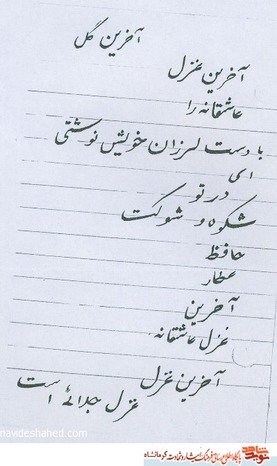 آخرین گل
آخرین غزل
عاشقانه را
با دست لرزان خویش نوشتی
ای
در تو
شکوه و شوکت
حافظ
عطار
آخرین
غزل عاشقانه
آخرین غزل
غزل جدائی است
navideshahed.com
نوید شاهد
پایگاه اطلاع رسانی فرهنگ ایثار و شهادت کرمانشاه